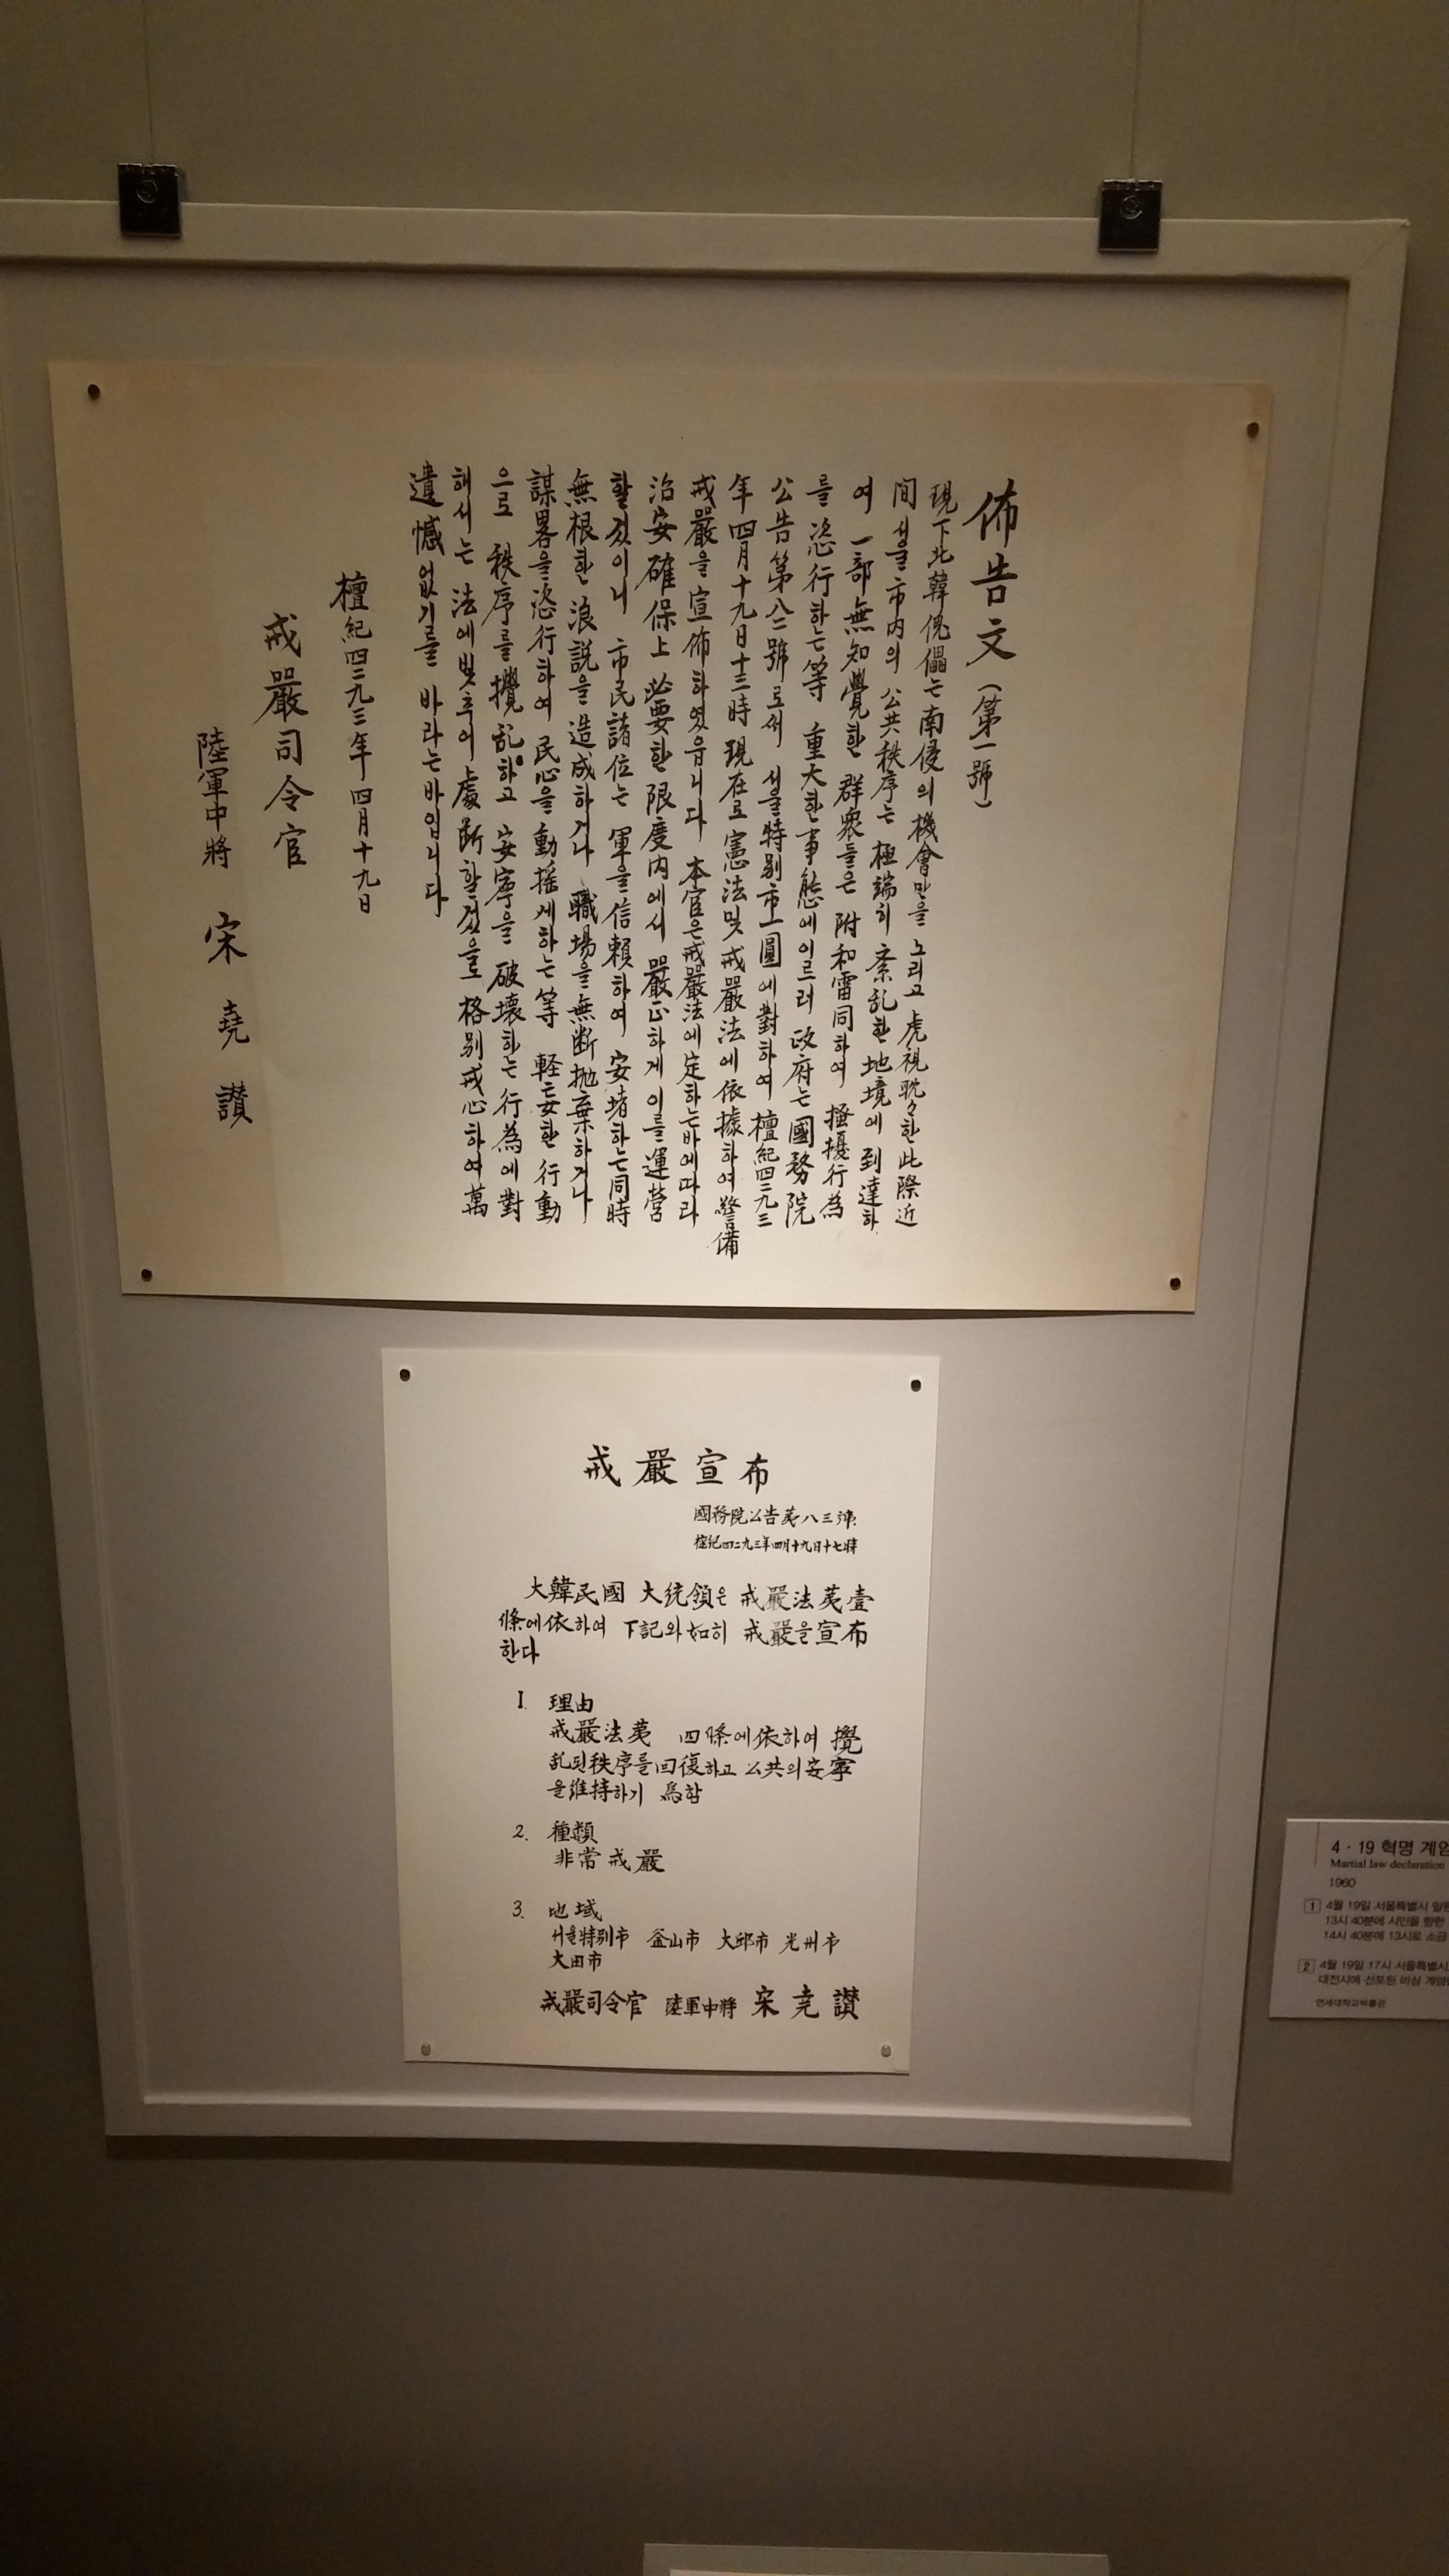 佈告文(第一號)
現下北韓傀儡는 南侵의 機會만을 노리고 虎視耽々한 此際 近
間 서울市内의 公共秩序는 極端히 紊乱한 地境에 到達하
여 一部 無知覺한 群衆들은 附和雷同하여 搔擾行為
를 恣行하는 等 重大한 事態에 이르러 政府는 國務院
公告第八二號로써 서울特別市一圓에 對하여 檀紀四二九三
年四月十九日十三時 現在로 憲法및 戒嚴法에 依據하여 警備
戒嚴을 宣佈하였읍니다 本官은 戒嚴法에 定하는바에따라
治安確保上 必要한 限度内에서 嚴正하게 이를 運營
할것이니 市民諸位는 軍을 信賴하여 安堵하는 同時
無根한 浪説을 造成하거나 職場을 無断抛棄하거나
謀畧을 恣行하여 民心을 動搖게하는 等 軽妄한 行動
으로 秩序를 攪乱하고 安寧을 破壞하는 行為에 對
해서는 法에빛추어 處断할것을로 格別戒心하여 萬
遺憾없기를 바라는바입니다
檀紀四二九三年 四月十九日
戒嚴司令官
陸軍中將 宋堯讃
戒嚴宣布
國務院公告苐八三號
檀紀四二九三年四月十九日十七時
大韓民國 大統領은 戒嚴法苐壹
條에依하여 下記와如히 戒嚴을宣布
한다
1. 理由
戒嚴法苐 四條에依하여 攪
乱된秩序를回復하고 公共의安寧
을維持하기 爲함
2. 種類
非常戒嚴
3. 地域
서울特別市 釜山市 大邱市 光州市
大田市
戒嚴司令官 陸軍中將 宋堯讃
4·19 혁명 계엄
Martial law declaration
1960
1 4월 19일 서울특별시 일원
13시 40분에 시민을 향한
14시 40분에 13시로 소급
2 4월 19일 17시 서울특별시,
대전시에 선포된 비상 계엄
연세대학교박물관